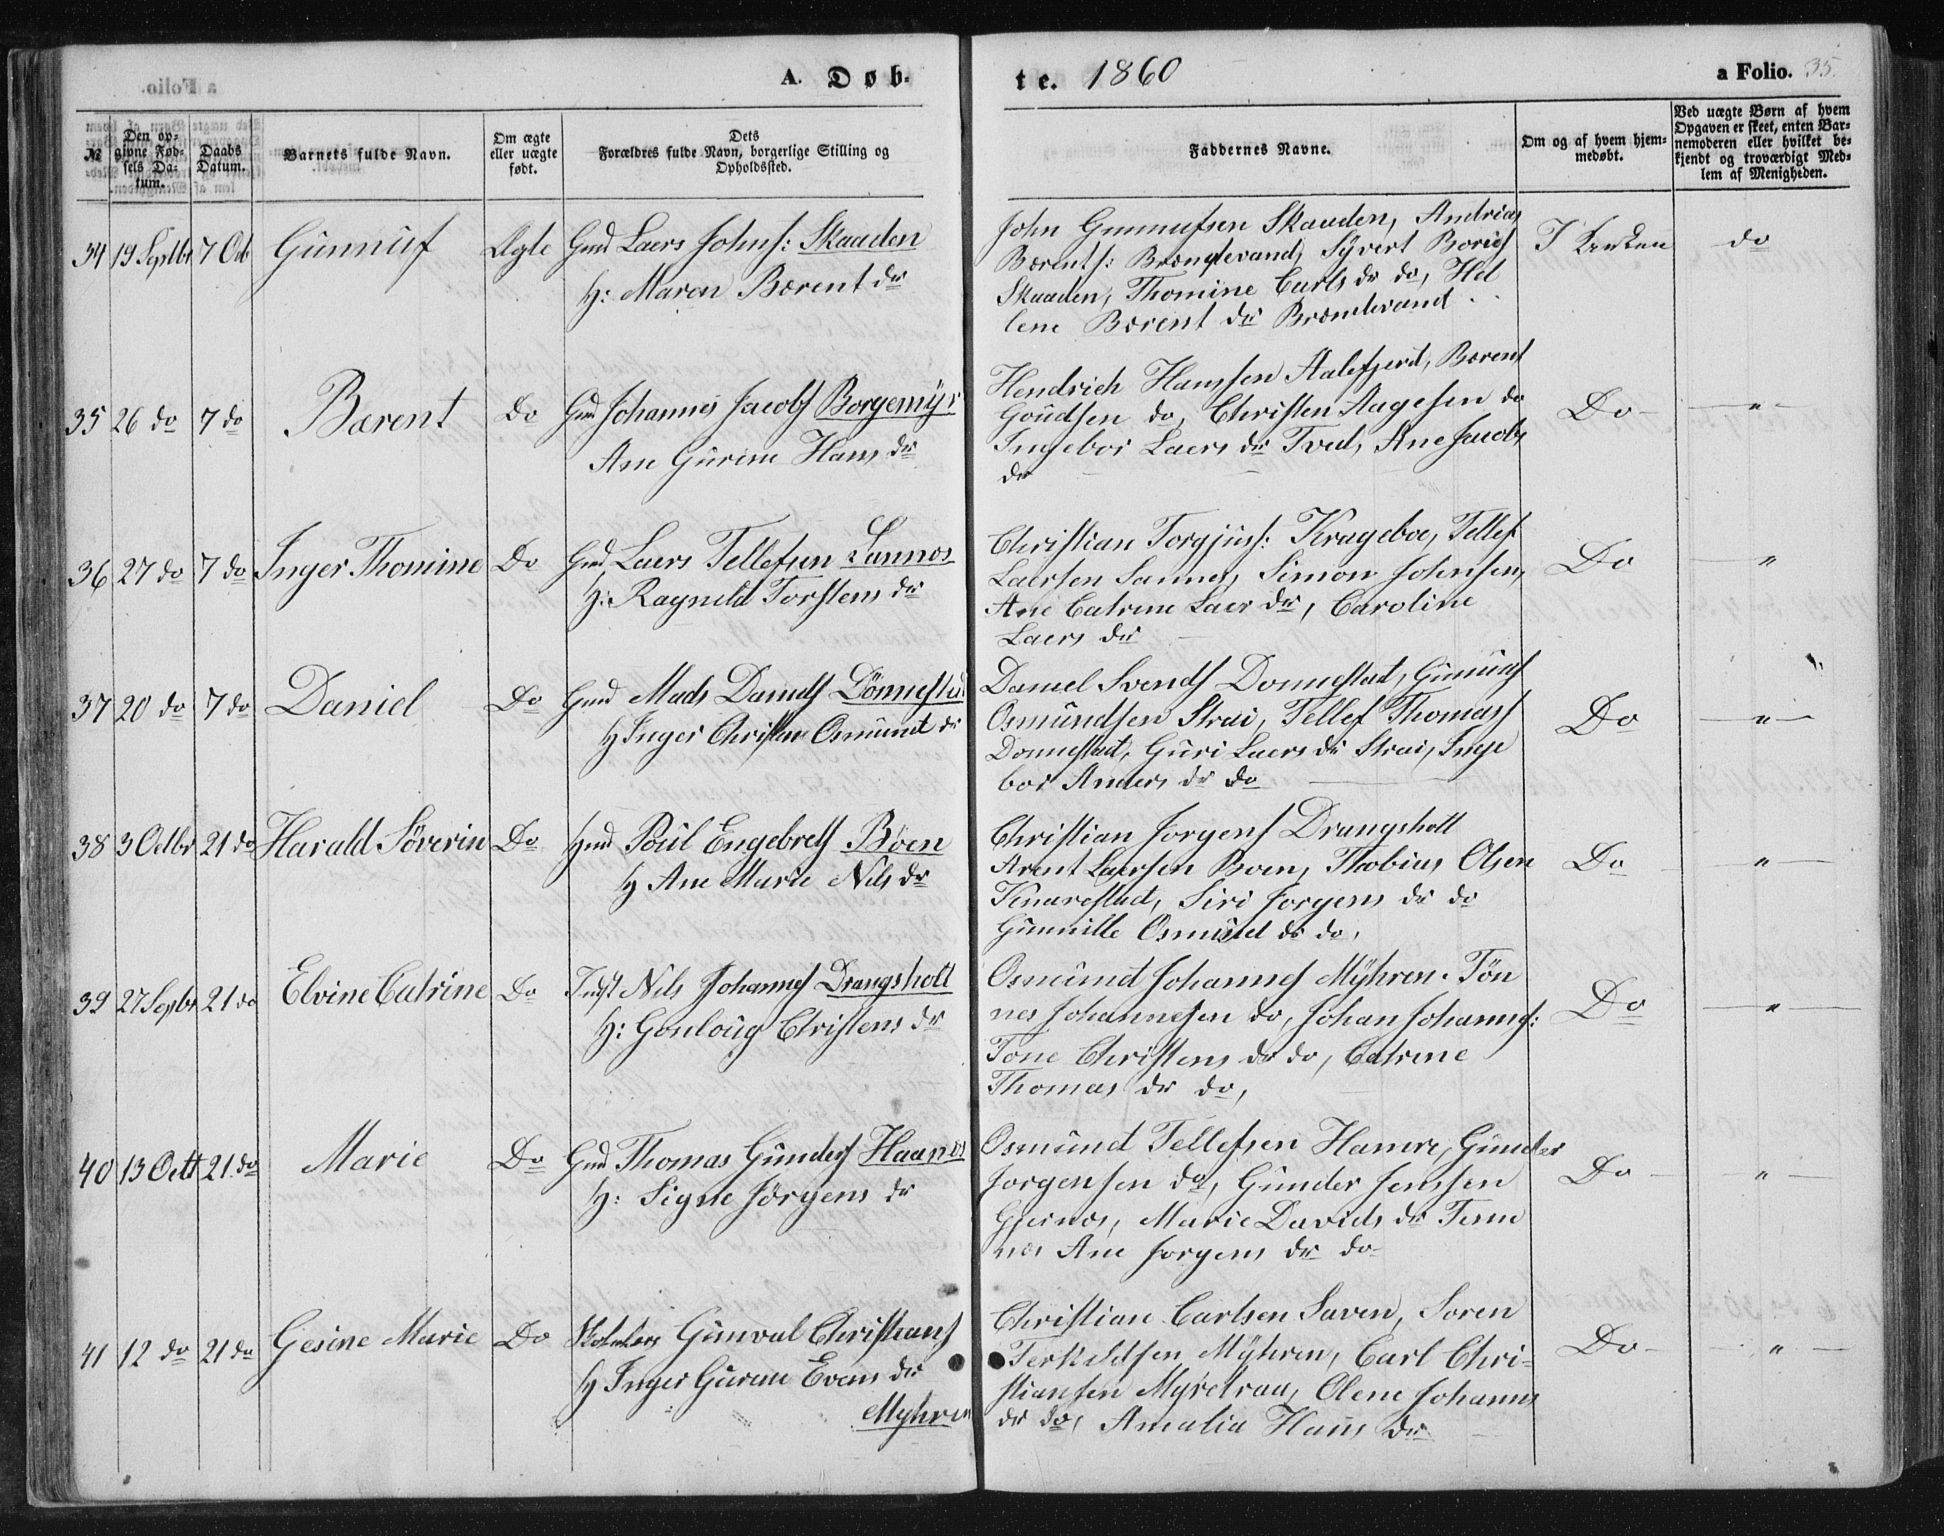 A. Døb-
te. 1860
a Folio. 35.
№
Den op-
givne Fød-
sels Da-
tum.
Daabs
Datum.
Barnets fulde Navn.
Om ægte
eller uægte
født.
Dets
Forældres fulde Navn, borgerlige Stilling og
Opholdssted.
Faddernes Navne.
Om og af hvem hjem-
medøbt.
Ved uægte Børn af hvem
Opgaven er skeet, enten Bar-
nemoderen eller hvilket be-
kjendt og troværdigt Med-
lem af Menigheden.
34 19 Septbr 7 Octb Gunnuf Ægte Gmd Laers Johns: Skaaden
H: Maren Bærent dr
John Gunnufsen Skaaden, Andrias
Bærents: Brændevand, Syvert Bories
Skaaden, Thomine Carls dr do, Hel
lene Bærent dr Brændevand
I Kirken do
35 26 do 7 do Bærent Do Gmd Johannes Jacobs Borgemyr
Ane Gurine Hans dr
Hendrich Hanssen Aalefjærd, Bærent
Goudsen do, Christen Aagesen do
Ingebor Laers dr Tved, Ane Jacobs
dr
Do - " -
36 27 do 7 do Inger Thomine Do Gmd Laers Tellefsen Sannæs
H: Ragnild Torstens dr
Christian Torgjus: Krageboe, Tellef
Laersen Sannes, Simon Johnsen,
Ane Catrine Laer dr, Caroline
Laers dr
Do "
37 20 do 7 do Daniel Do Gmd Mads Daniels Dönnestad
H Inger Christine Osmund dr
Daniel Svends Donnestad, Gunius
Osmundsen Strai, Tellef Thomass
Donnestad, Guri Laers dr Strai, Inge
bor Anders dr do
Do - " -
38 3 Octbr 21 do Harald Söverin Do Hmd Poul Engebreths Böen
H Ane Marie Nils dr
Christian Jorgens Drangsholt
Arent Laersen Boen, Thobias Olsen
Kenarestad, Siri Jorgens dr do
Gunnille Osmund dr do,
Do "
39 27 Septbr 21 do Elvine Catrine Do Indst Nils Johannes Drangsholt
H: Gonloug Christens dr
Osmund Johannes Myhren. Tön
nes Johannesen do, Johan Johannes:
Tone Christens dr do, Catrine
Thomas dr do,
Do "
40 13 Octb 21 do Marie Do Gmd Thomas Gunders Haanes
H: Signe Jörgens dr
Osmund Tellefsen Hamre, Gunder
Jorgensen do, Gunder Jenssen
Gjeinos, Marie Davids dr Tenne
næs Ane Jorgens dr do
Do "
41 12 do 21 do Gesine Marie Do Skolelærs Gunval Christians
H Inger Gurine Evens dr
Myhren
Christian Carlsen Saven, Soren
Terkildsen Myhren, Carl Chri-
stiansen Myretraa, Olene Johannes
dr do, Amalia Hans dr
Do "